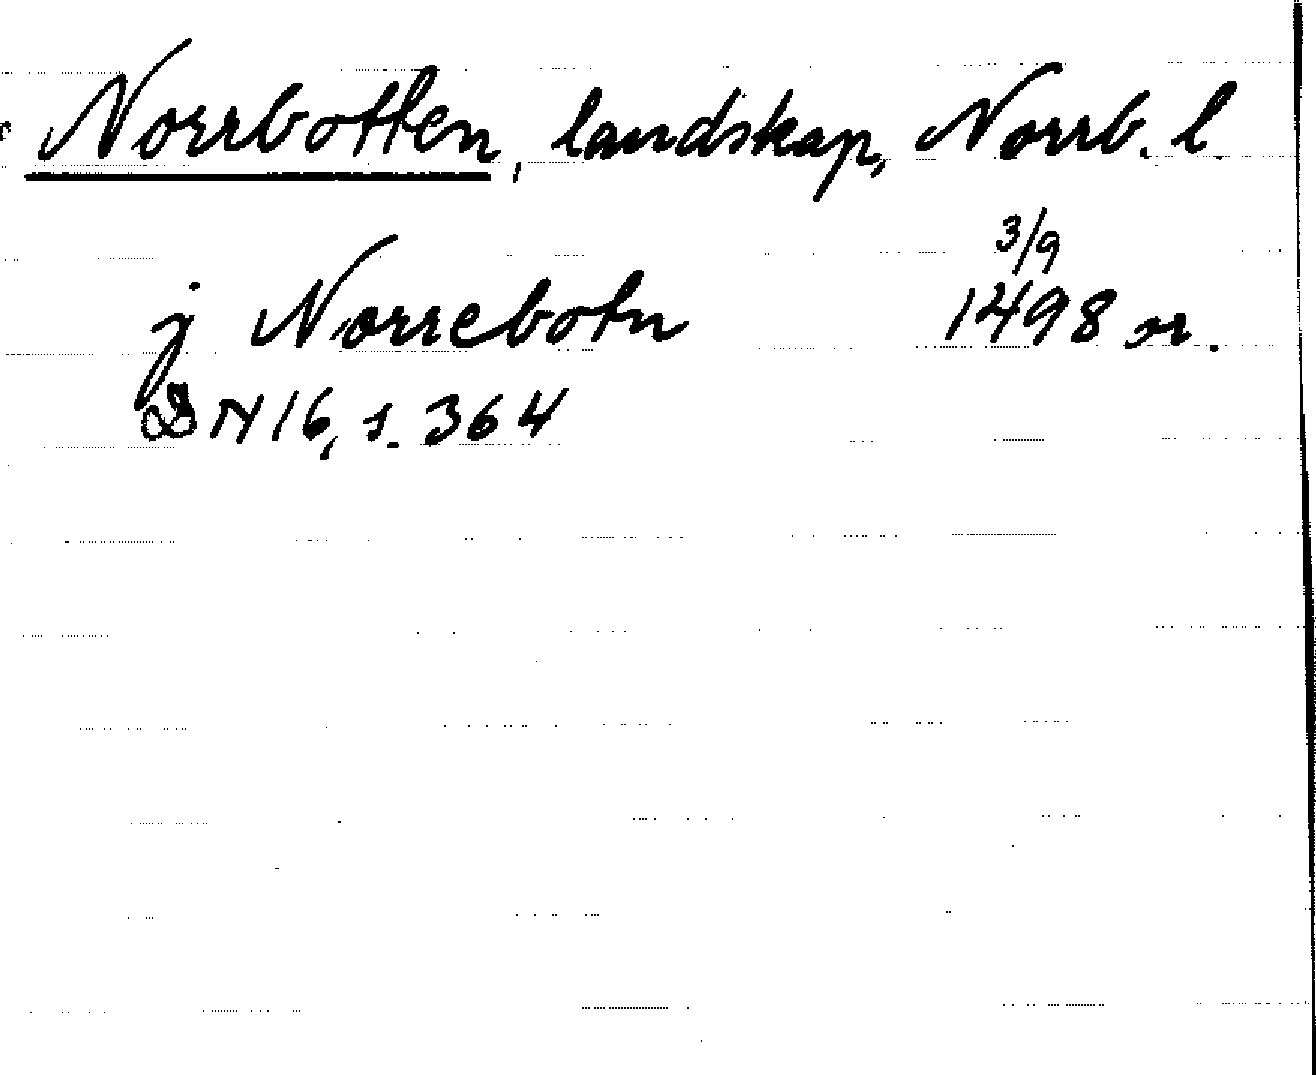 Norrbotten, landskap, Norrb. l.
j Norrebotn 3/9 1498 or.
DN 16, s. 364